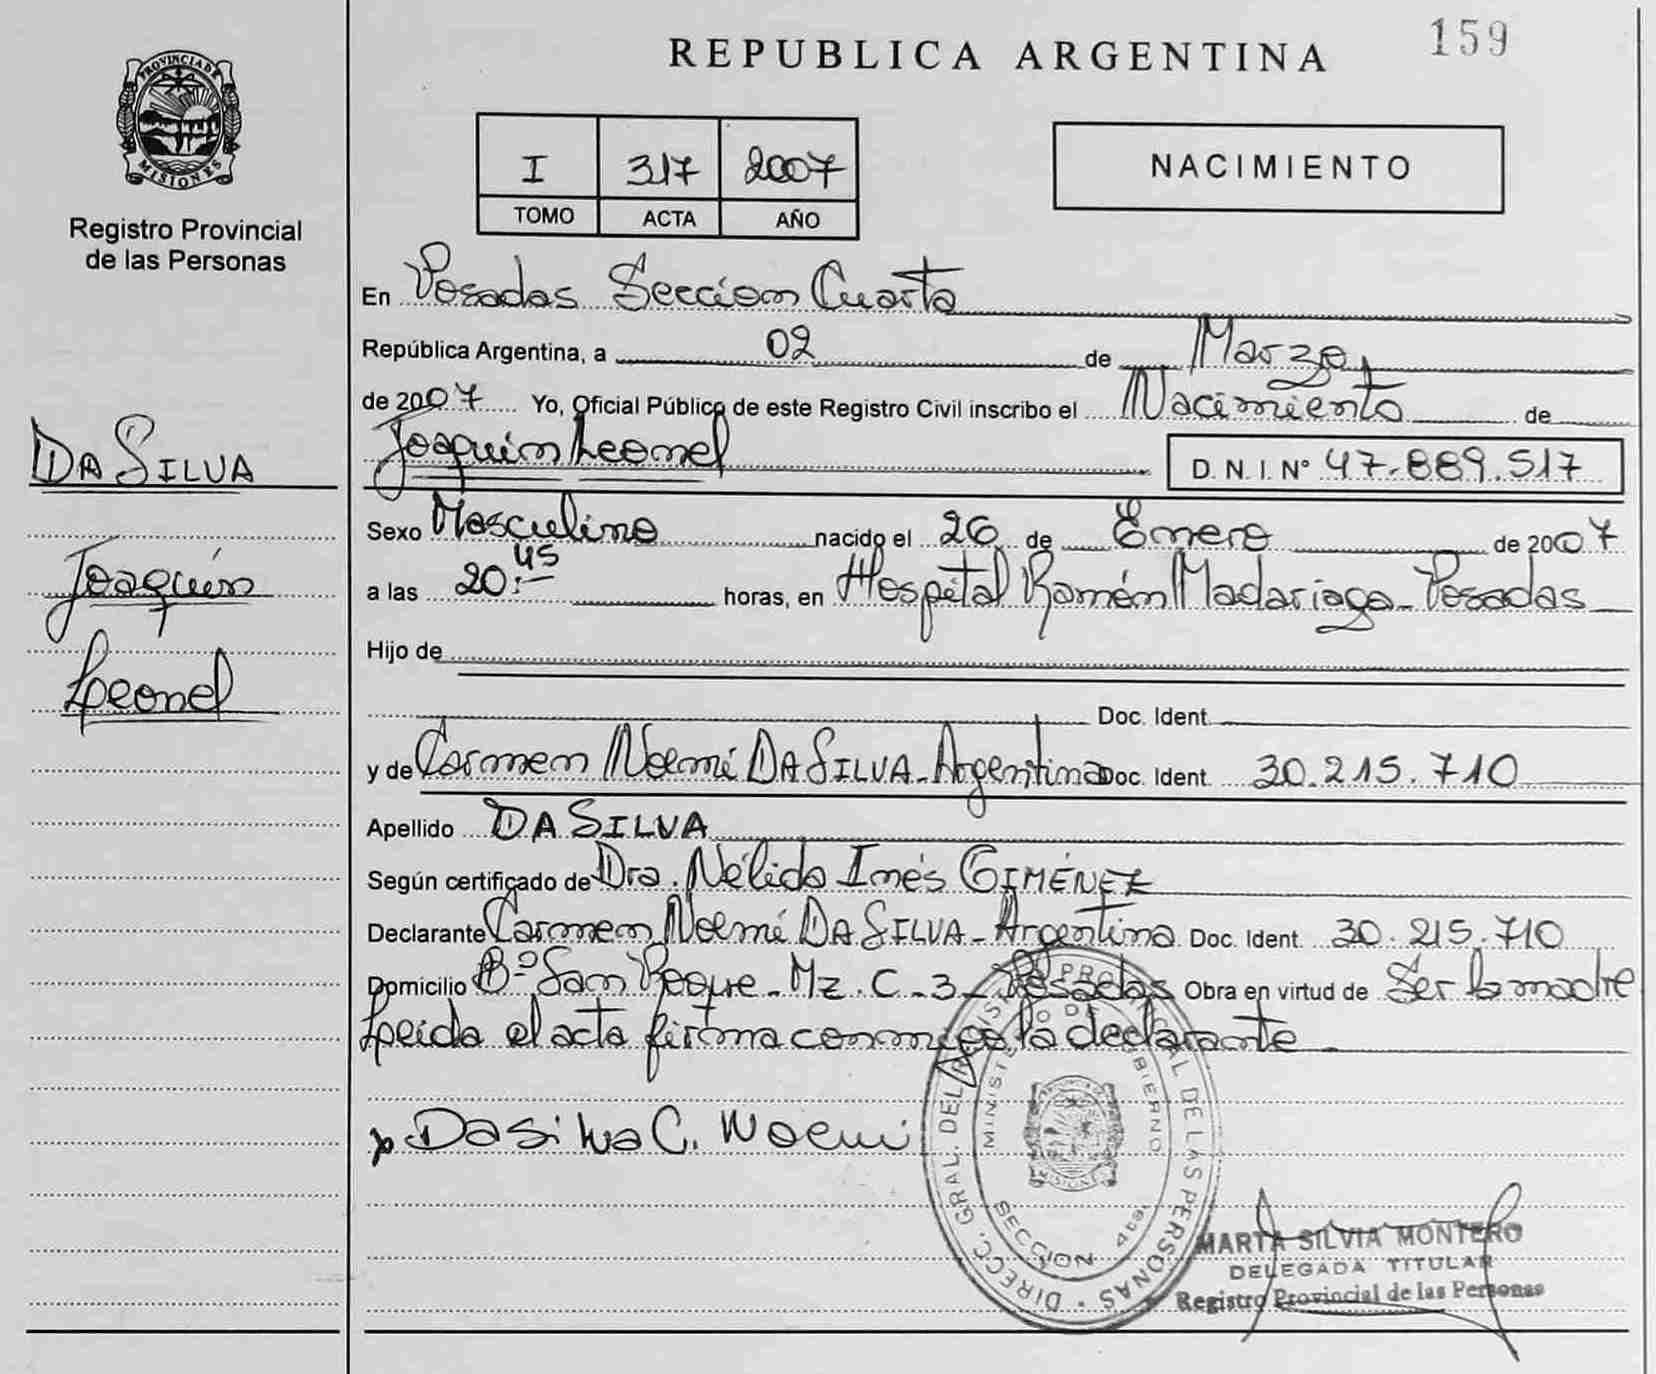 159
REPUBLICA ARGENTINA
PROVINCIA DE
MISIONES
Registro Provincial
de las Personas
I 317 2007
TOMO ACTA AÑO
NACIMIENTO
En Posadas Sección Cuarta
República Argentina, a 02 de Marzo
de 2007 Yo, Oficial Público de este Registro Civil inscribo el Nacimiento de
Joaquín Leonel D. N. I. N° 47.889.517
DA SILVA
Joaquín
Leonel
Sexo Masculino nacido el 26 de Enero de 2007
a las 20:45 horas, en Hospital Ramón Madariaga - Posadas
Hijo de
Doc. Ident.
y de Carmen Noemí DA SILVA - Argentina Doc. Ident. 30.215.710
Apellido DA SILVA
Según certificado de Dra. Nélida Inés GIMÉNEZ
Declarante Carmen Noemí DA SILVA - Argentina Doc. Ident. 30.215.710
Domicilio Bº San Roque - Mz. C - 3 - Posadas Obra en virtud de Ser la madre
Leida el acta firma conmigo la declarante -
Dasilva C. Noemi
DIRECC. GRAL. DEL REGISTRO PROVINCIAL DE LAS PERSONAS
MINISTERIO DE GOBIERNO
SECCION 4ta
MISIONES
MARTA SILVIA MONTERO
DELEGADA TITULAR
Registro Provincial de las Personas